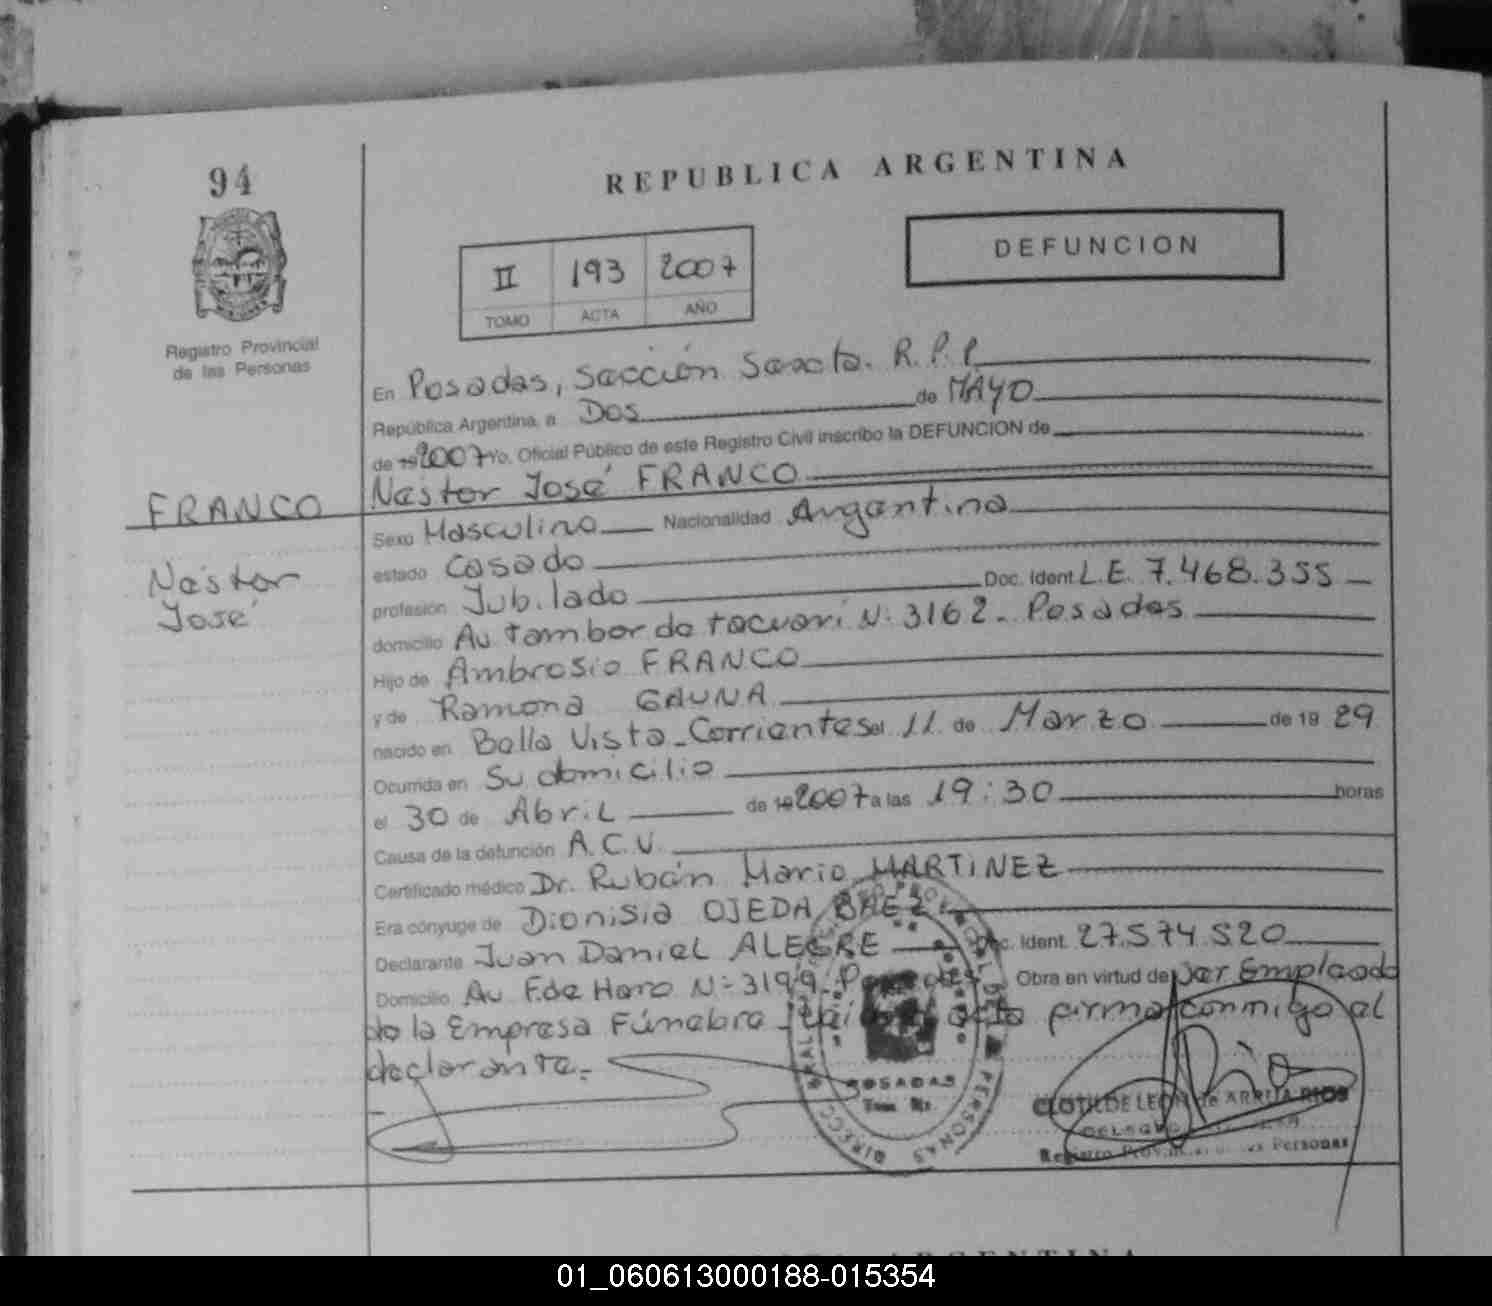 94
REPUBLICA ARGENTINA
DEFUNCION
II 193 2007
TOMO ACTA AÑO
Registro Provincial
de las Personas
En Posadas, Sección Sexcta. R.P.P
República Argentina, a Dos de MAYO
de 19 2007 Yo, Oficial Público de este Registro Civil inscribo la DEFUNCION de
Néstor José FRANCO
FRANCO
Néstor
José
Sexo Masculino Nacionalidad Argentina
estado Casado
profesión Jubilado Doc. Ident. L.E. 7.468.355
domicilio Av. Tambor de tacuarí N: 3162 - Posadas
Hijo de Ambrosio FRANCO
y de Ramona GAUNA
nacido en Bella Vista - Corrientes el 11 de Marzo de 19 29
Ocurrida en Su domicilio
el 30 de Abril de 19 2007 a las 19:30 horas
Causa de la defunción A.C.V.
Certificado médico Dr. Rubén Mario MARTINEZ
Era cónyuge de Dionisia OJEDA BAEZ
Declarante Juan Daniel ALEGRE Doc. Ident. 27.574.520
Domicilio Av F.de Haro N: 3199 - Posadas Obra en virtud de ser Empleado
de la Empresa Fúnebre - acta firma conmigo el
declarante.-
POSADAS
PERSONAS
CLOTILDE LEON de ARRUA RIOS
Registro Personas
ARGENTINA
01_060613000188-015354